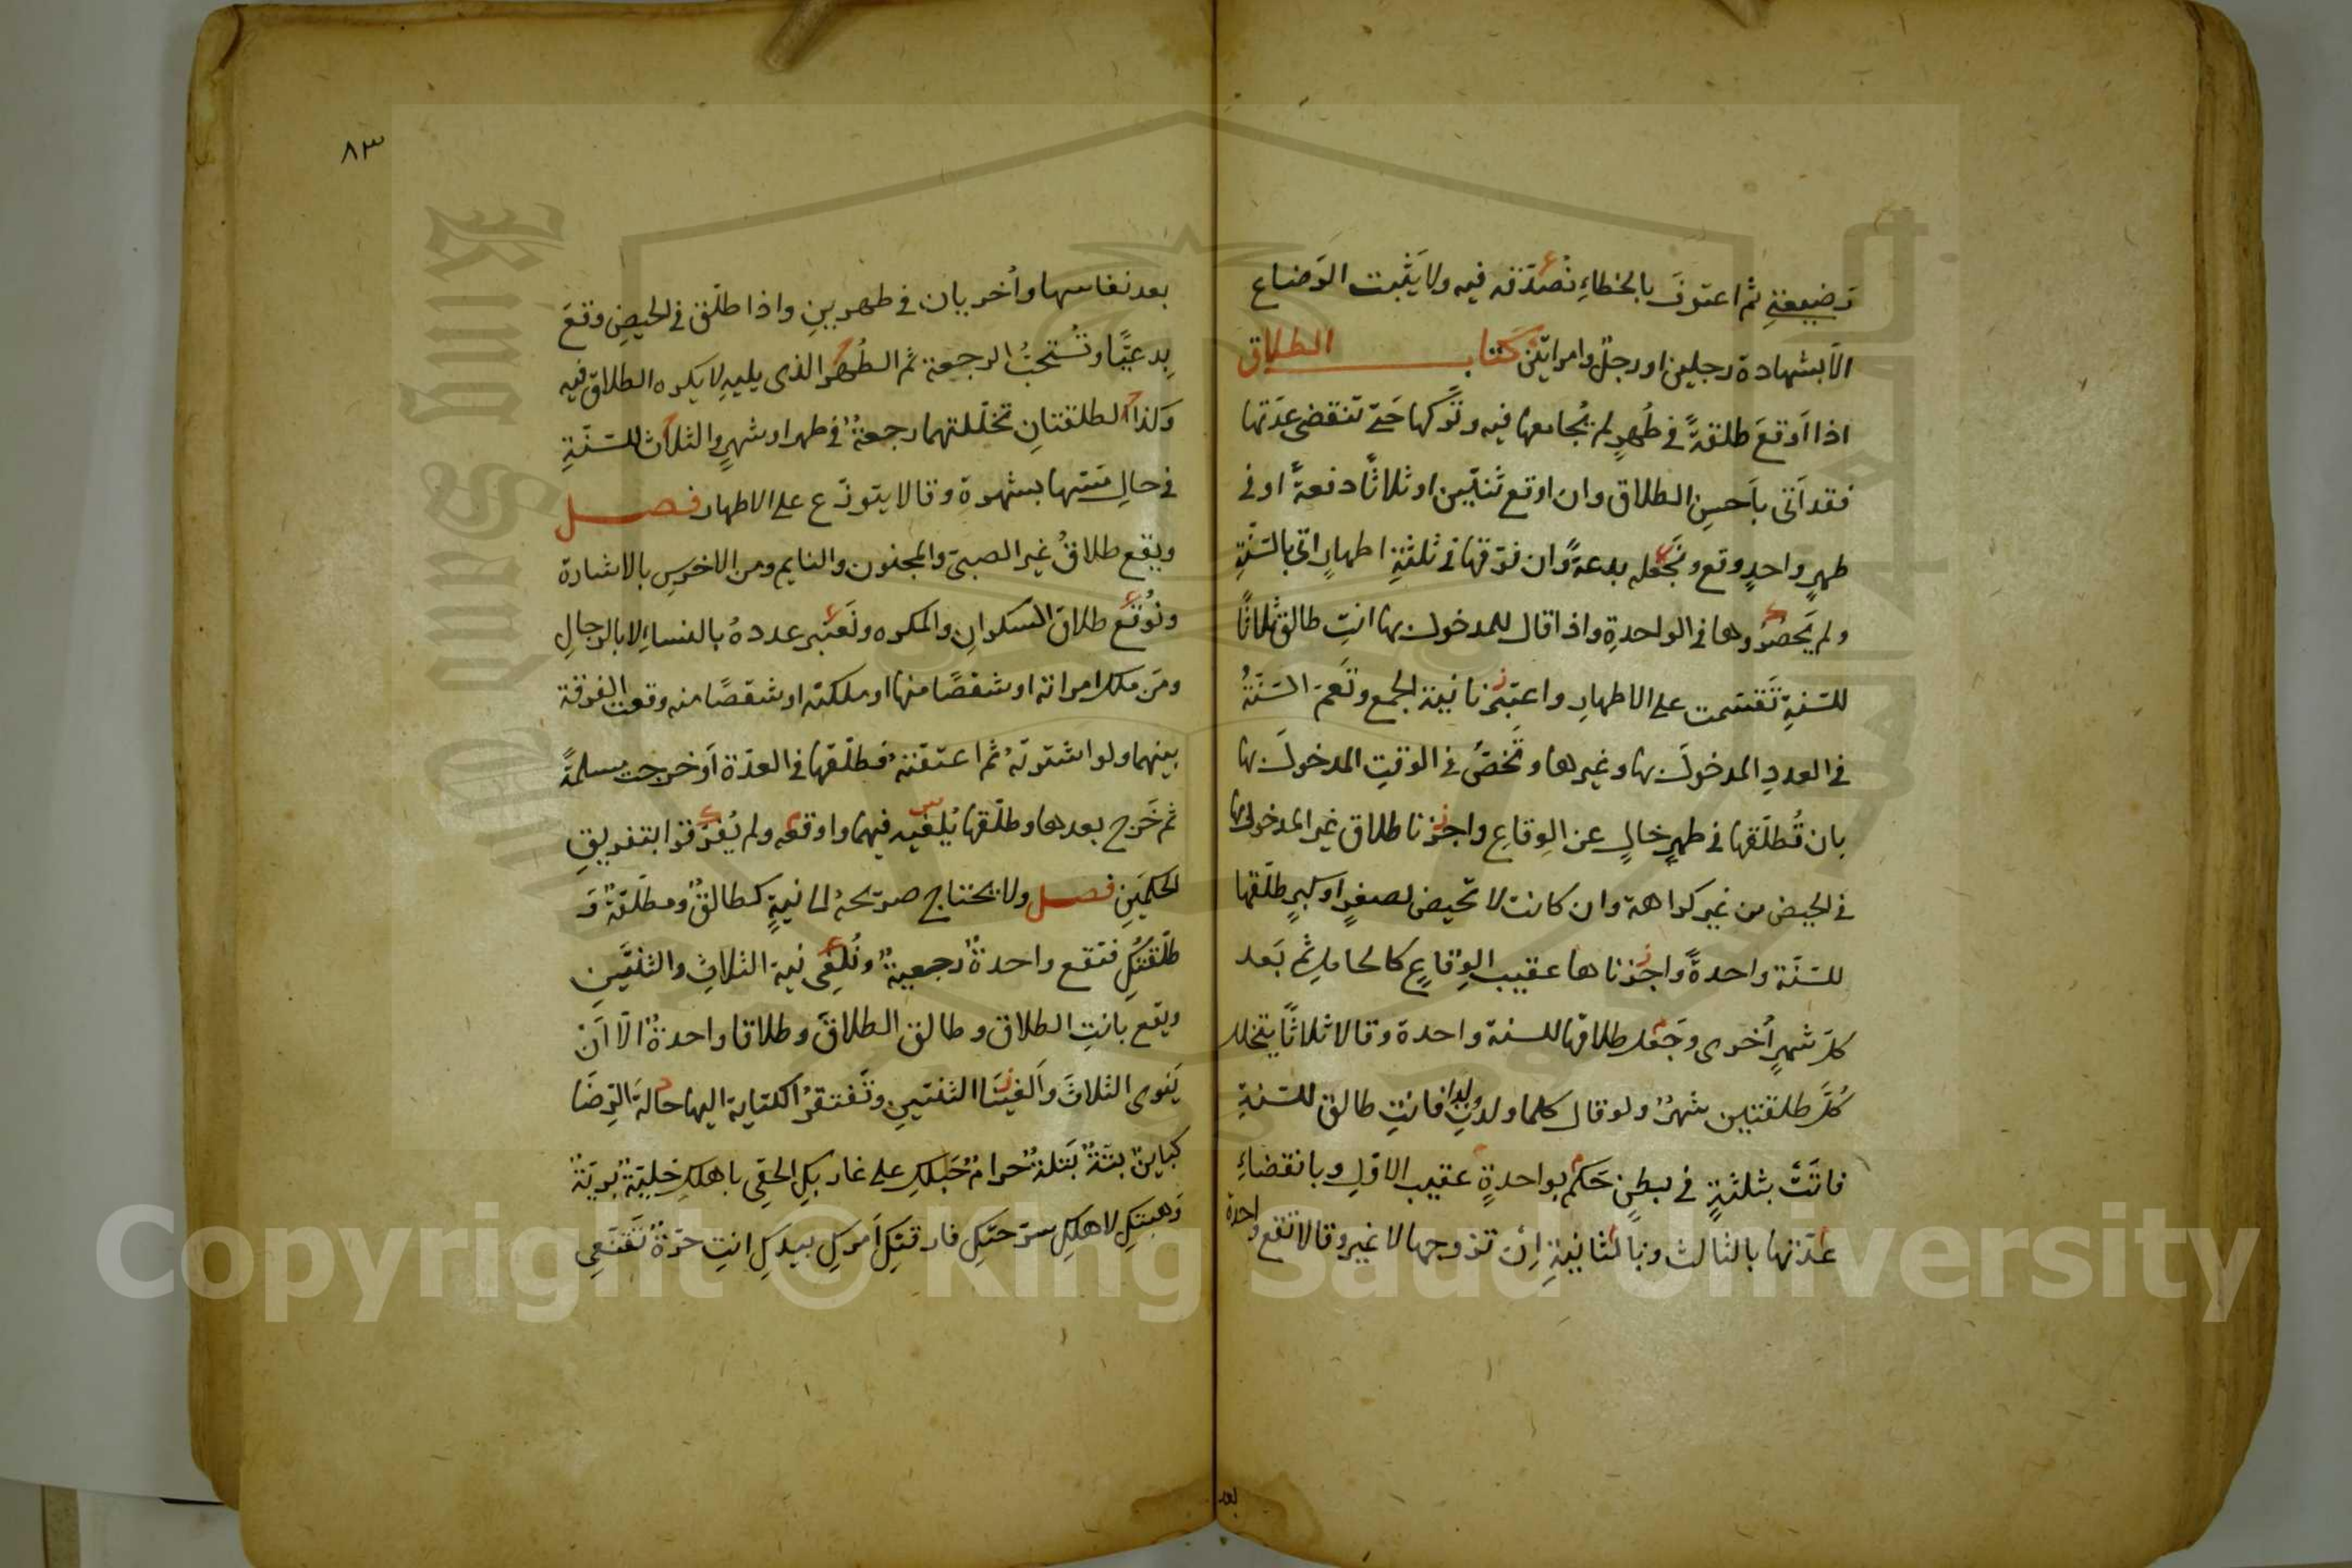 رضيعتي ثم اعترف بالخطاءِ نُصدّقه فيه ولا يَثبت الرَضاع
الّا بشهادة رجلين او رجلٍ وامراتين كتاب الطلاق
اذا اَوقعَ طلقةً في طُهرٍ لم يُجامعها فيه وتركها حَتّى تنقضي عدّتها
فقد اَتى باَحسنِ الطلاق وان اوقع ثنتين او ثلاثًا دفعةً او في
طهرٍ واحدٍ وقع ونجعله بدعةً وان فرّقها في ثلثةِ اطهارٍ اتى بالسّنّةِ
ولم يَحصُروها في الواحدةِ واذا قال للمدخول بها انتِ طالق ثلاثًا
للسّنةِ تَقسّمت على الاطهارِ واعتبَرنا نية الجمع وتَعمّ السّنّةُ
في العددِ المدخولَ بها وغيرها وتَخصّ في الوقتِ المدخولَ بها
بان تُطلّقها في طهرٍ خالٍ عن الوِقاعِ واجزنا طلاق غير المدخول بها
في الحيض من غير كراهة وان كانت لا تحيض لصغرٍ او كبرٍ طلّقها
للسّنّة واحدةً واجزناها عقيب الوِقاعِ كالحاملِ ثم بَعد
كلّ شهرٍ اُخرى وجَعل طلاقها للسنة واحدة وقالا ثلاثًا يتخلل
كُلَّ طلقتين شهرٌ ولو قال كلما ولدتِ ولدا فانتِ طالق للسّنةِ
فاتَتْ بثلثةٍ في بطنٍ حَكم بواحدةٍ عقيب الاوّلِ وبانقضاءِ
عدّتها بالثالث وبالثانيةِ اِن تزوجها لا غير وقالا تقع واحدة
بعد
٨٣
بعد نفاسها واُخريان في طهرينِ واذا طلّق في الحيضِ وقعَ
بِدعيًّا وتُستحبُّ الرجعة ثم الطُهرُ الذى يليهِ لا يكره الطلاق فيه
وَكذا الطلقتانِ تخلّلتهما رجعةٌ في طهر او شهرٍ والثلاث للسّنّةِ
في حالِ مَسّها بشهوة وقالا يتوزّع على الاطهار فصل
ويقع طلاقُ غير الصبىّ والمجنون والنايم ومن الاخرسِ بالاشارة
ونُوقع طلاق السكرانِ والمكره ونَعتبر عددهُ بالنساءِ لا بالرجالِ
ومَن ملك امراته او شقصًا منها او ملكته او شقصًا منه وقعت الفرقة
بينهما ولو اشترتهُ ثم اعتقتهُ فطلّقها في العدّة اَو خرجت مسلمةً
ثم خَرج بعدها وطلّقها يُلغيه فيهما واوقعه ولم يُفرّقوا بتفريقِ
الحكمَينِ فصل ولا يحتاج صريحهُ الى نيةٍ كطالقٌ ومطلّقةٌ وَ
طلّقتُكِ فتقع واحدةٌ رجعيةٌ ونُلغِى نية الثلاثِ والثنتَينِ
ويقع بانتِ الطلاق وطالق الطلاقَ وطلاقا واحدةٌ الّا اَنْ
يَنوى الثلاثَ واَلغينَا الثنتينِ وتَفتقرُ الكناية اليها حالةَ الرِضَا
كباينٌ بتّةٌ بَتلةٌ حرامٌ حَبلكِ على غاربكِ الحقِى باهلكِ خليّةٌ بريّةٌ
وَهبتكِ لاهلكِ سرّحتكِ فارقتكِ اَمركِ بيدكِ انتِ حرّةٌ تقنّعى
Copyright © King Saud University